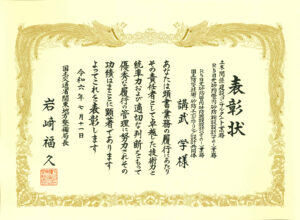 表彰状
土木関係建設コンサルタント業務
講武 学 様
あなたは頭書業務の履行にあたり
その責任者として卓越した技術力と
統率力および適切な判断をもって
優秀な履行の管理に努力されその
功績はまことに顕著であります
よってこれを表彰します
令和六年七月十一日
国土交通省関東地方整備局長
岩﨑福久